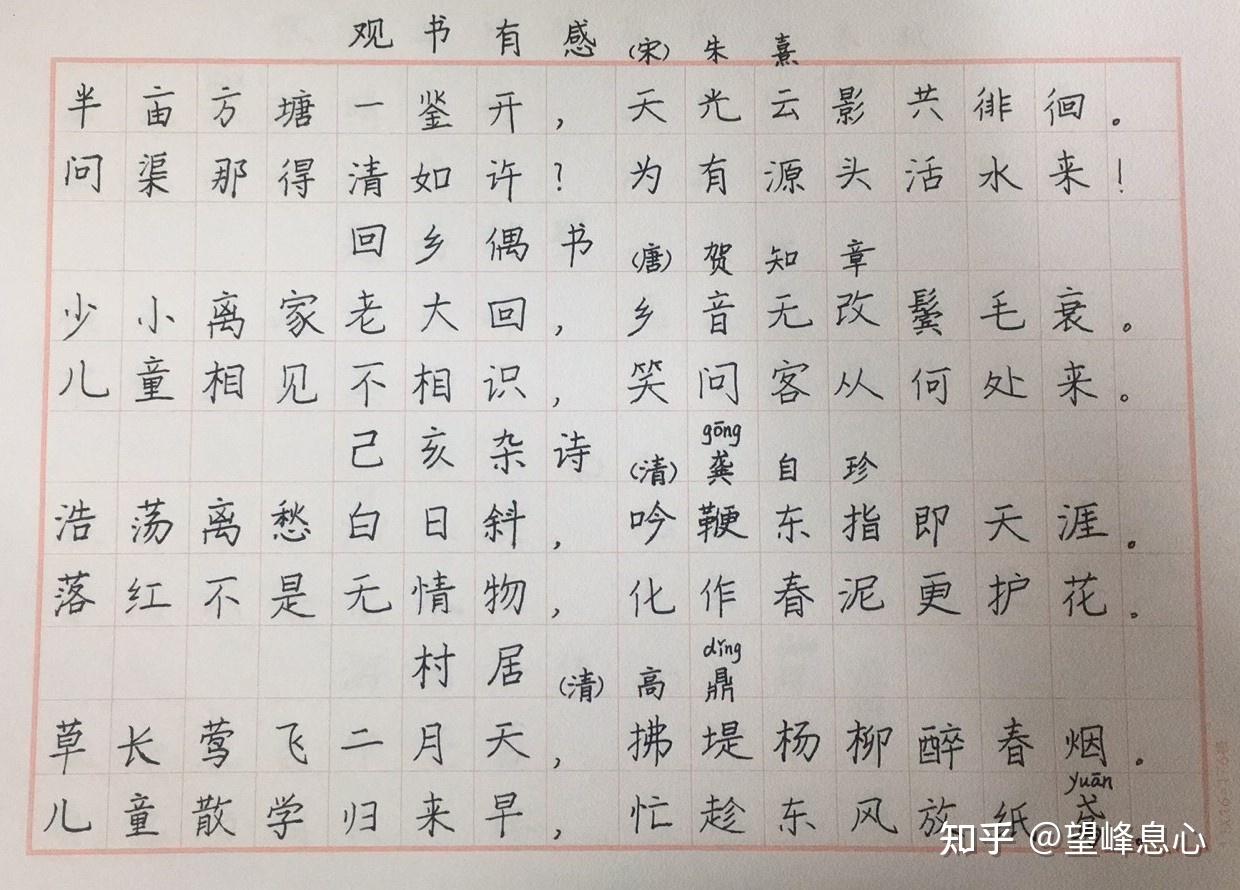 观书有感 (宋) 朱熹
半亩方塘一鉴开，天光云影共徘徊。
问渠那得清如许？为有源头活水来！
回乡偶书 (唐) 贺知章
少小离家老大回，乡音无改鬓毛衰。
儿童相见不相识，笑问客从何处来。
gōng
己亥杂诗 (清) 龚自珍
浩荡离愁白日斜，吟鞭东指即天涯。
落红不是无情物，化作春泥更护花。
dǐng
村居 (清) 高鼎
草长莺飞二月天，拂堤杨柳醉春烟。
yuān
儿童散学归来早，忙趁东风放纸鸢。
知乎 @望峰息心